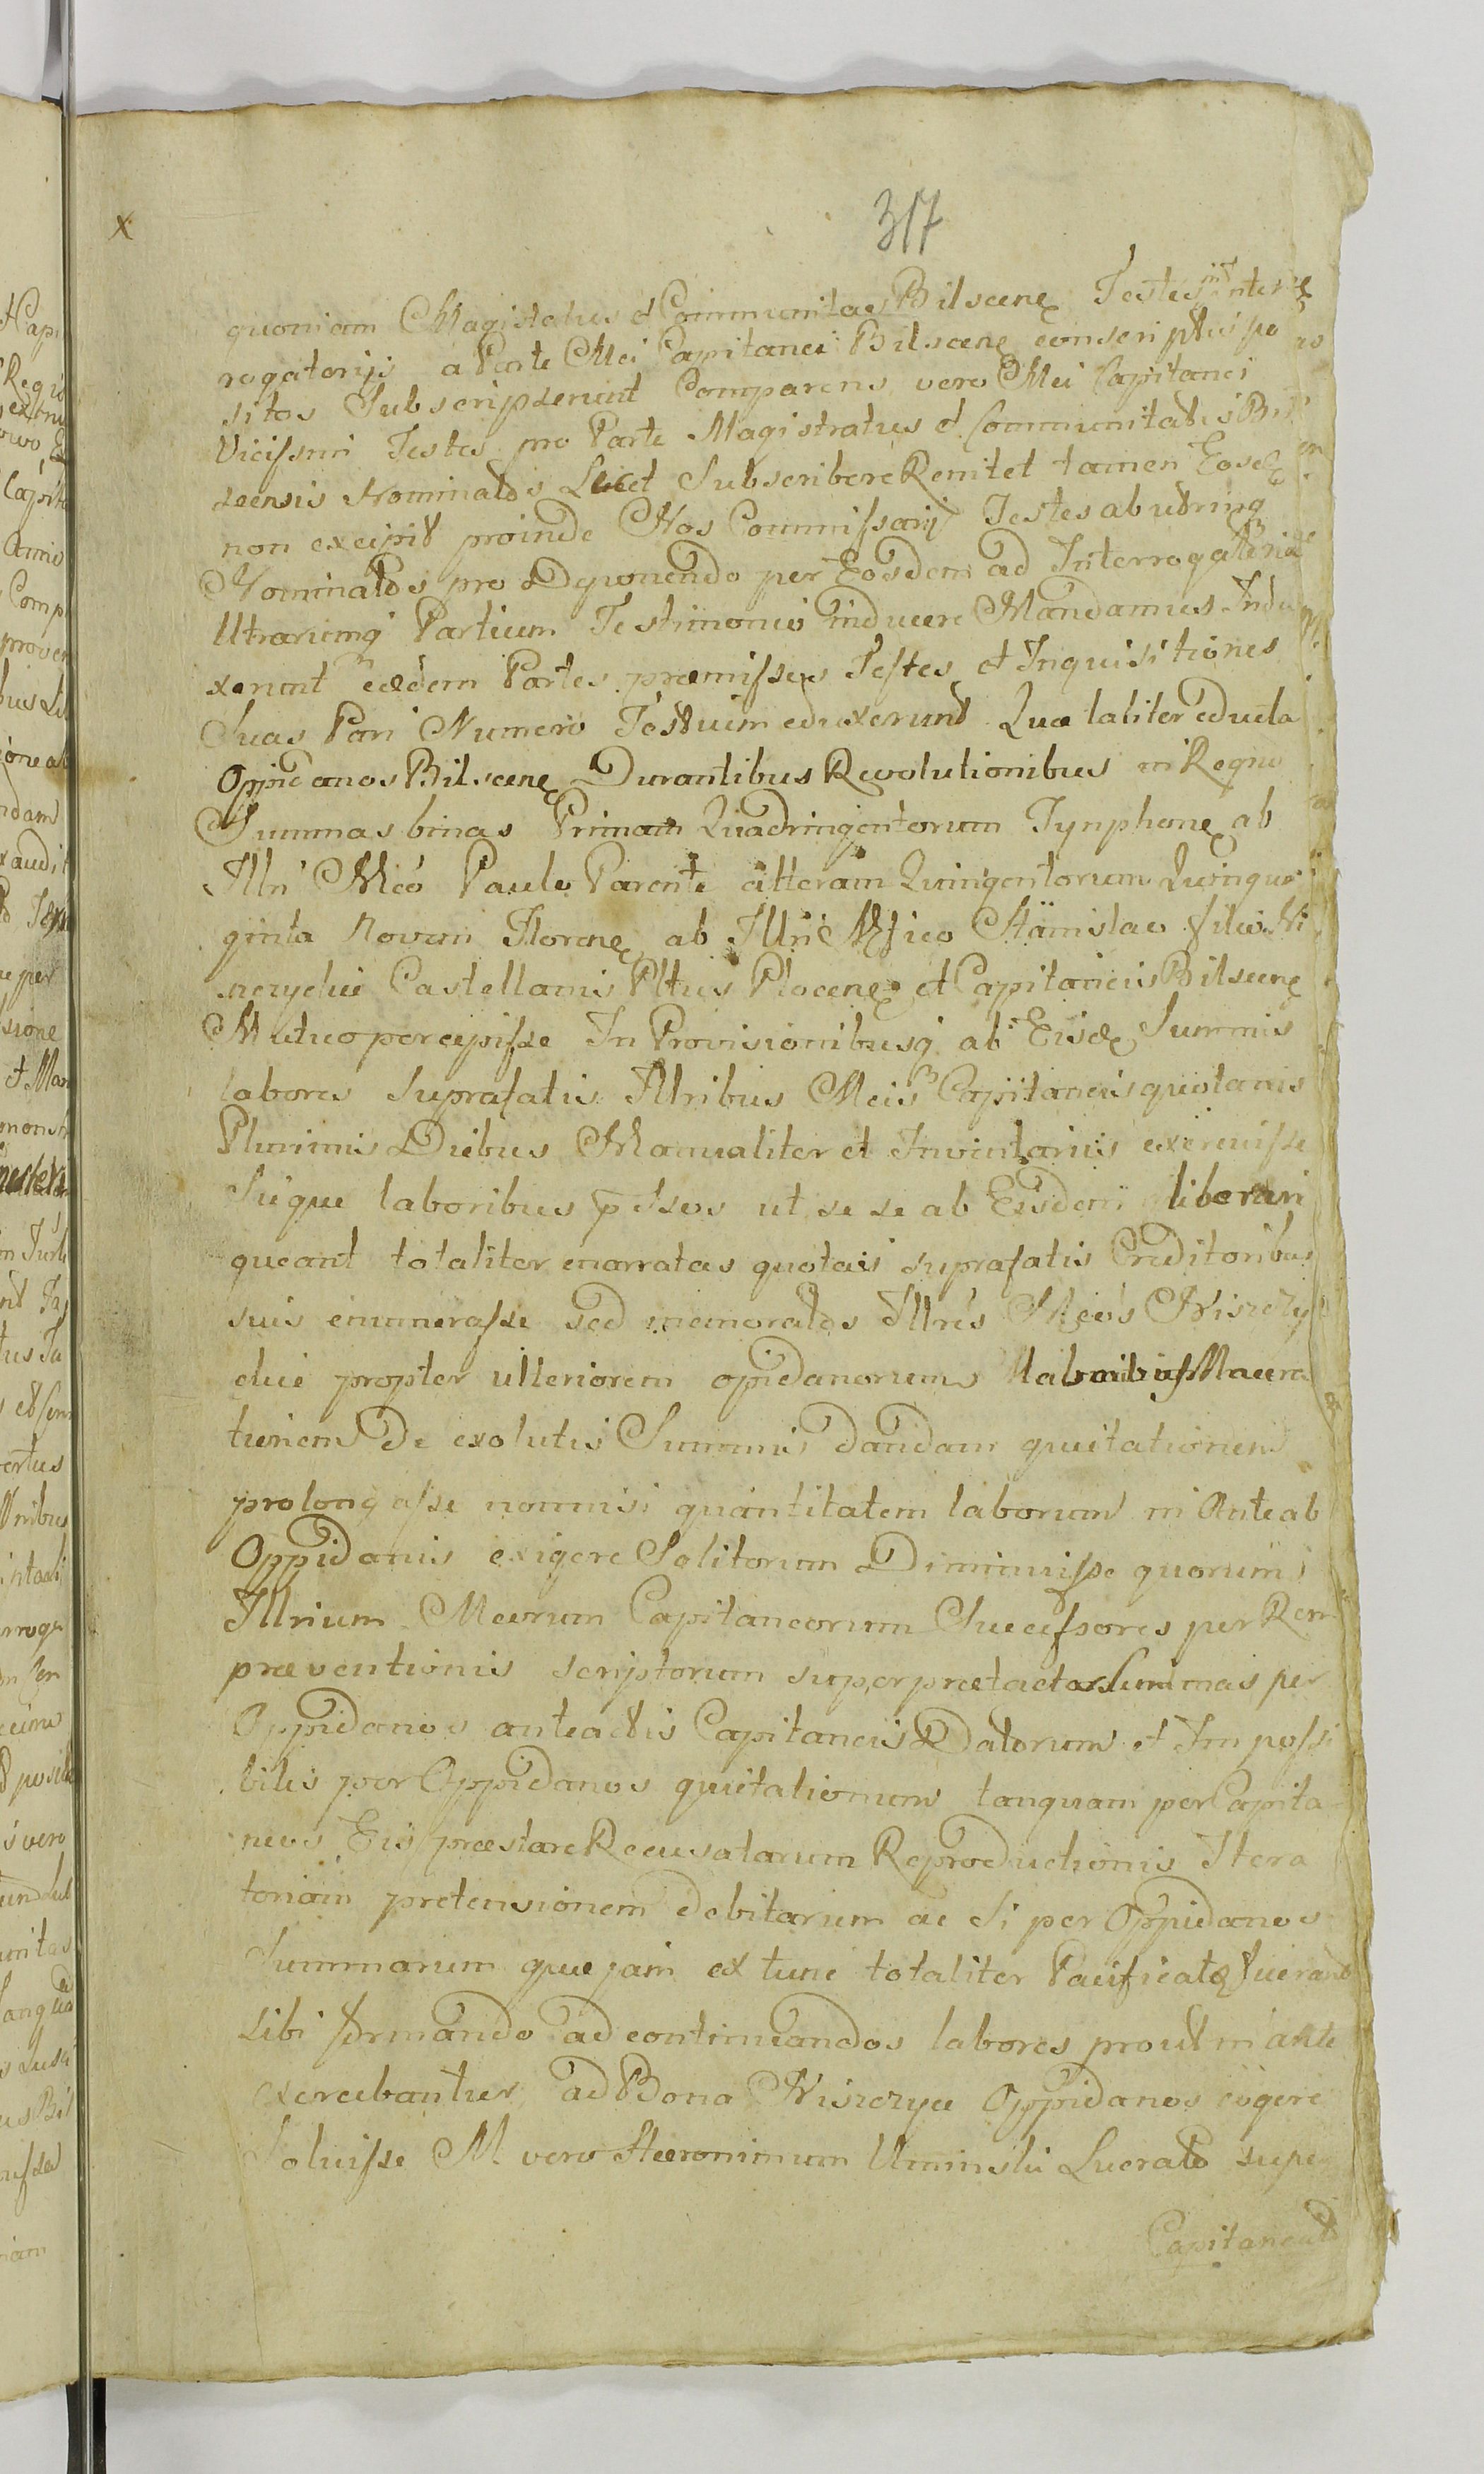 x
317
quoniam Magistatus et Communitas Bilscenę Testes inter
rogatorijs a Parte Mei Capitanei Bilscenę conscriptis po
sitos Subscripserunt Comparens vero Mei Capitanei
Vicissim Testes pro Parte Magistratus et Communitatis Bil
scensis Nominatos Licet Subscribere Renitet tamen Eosdę
non excipit proinde Nos Commissarij Testes ab utrinq
Nominatos pro Deponendo per Eosdem ad Interrogatoria
Utrarumq Partium Testimonio inducere Mandamus Indu
xerunt eædem Partes præmissos Testes et Inquisitiones
Suas Pari Numero Testium eduxerunt Qua taliter educta
Oppidanos Bilscenę Durantibus Revolutionibus in Regno
Summas binas Primam Quadringentorum Tynphonę ab
Illri Mco Paulo Parente alteram Quingentorum Quinqua
ginta Novem Florenę ab Illri Mfico Stanislao filio Ni
szczyckie Castellanis Pltus Plocenę et Capitaneis Bilscenę
Mutuo percepisse In Provisionibusq ab Eisdę Summis
labores Suprafatis Illribus Mcis Capitaneis quotanis
Plurimis Diebus Manualiter et Inventariis exercuisse
Sicque laboribus pssos ut se se ab Eisdem liberari
queant totaliter enarratas quotas suprafatis Creditoribus
suis enumerasse sed memoratos Illres Mcos Niszczy
ckie propter ulteriorem opidanorum laboribus Macera
tionem De exolutis Summis dandam quietationem
prolongasse nonnisi quantitatem laborum in Ante ab
Oppidanis exigere Solitorum Diminuisse quorum
Illrium Mcorum Capitaneorum Successores per Rem
præventionis scriptorum super prætactas Summas per
Oppidanos anteactis Capitaneis Datorum et Impossi
bilis per Oppidanos quietationum tanquam per Capita
neos Eis præstare Recusatarum Reproductionis Itera
toriam pretensionem debitarum ac Si per Oppidanos
Summarum quæ jam ex tunc totaliter Pacificatæ fuerant
Sibi formando ad continuandos labores prout in ante
exercebantur ad Bona Niszczyce Oppidanos cogere
Soluisse M vero Hieronimum Uminski Lucrato supe
Capitaneatu